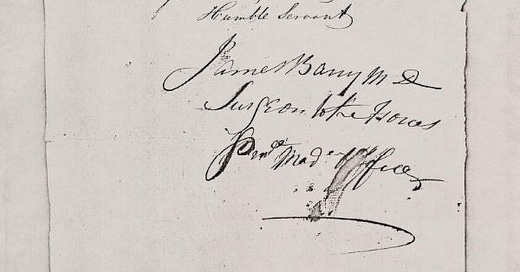 Humble Servant
James Barry MD
Surgeon to the Forces
Officer